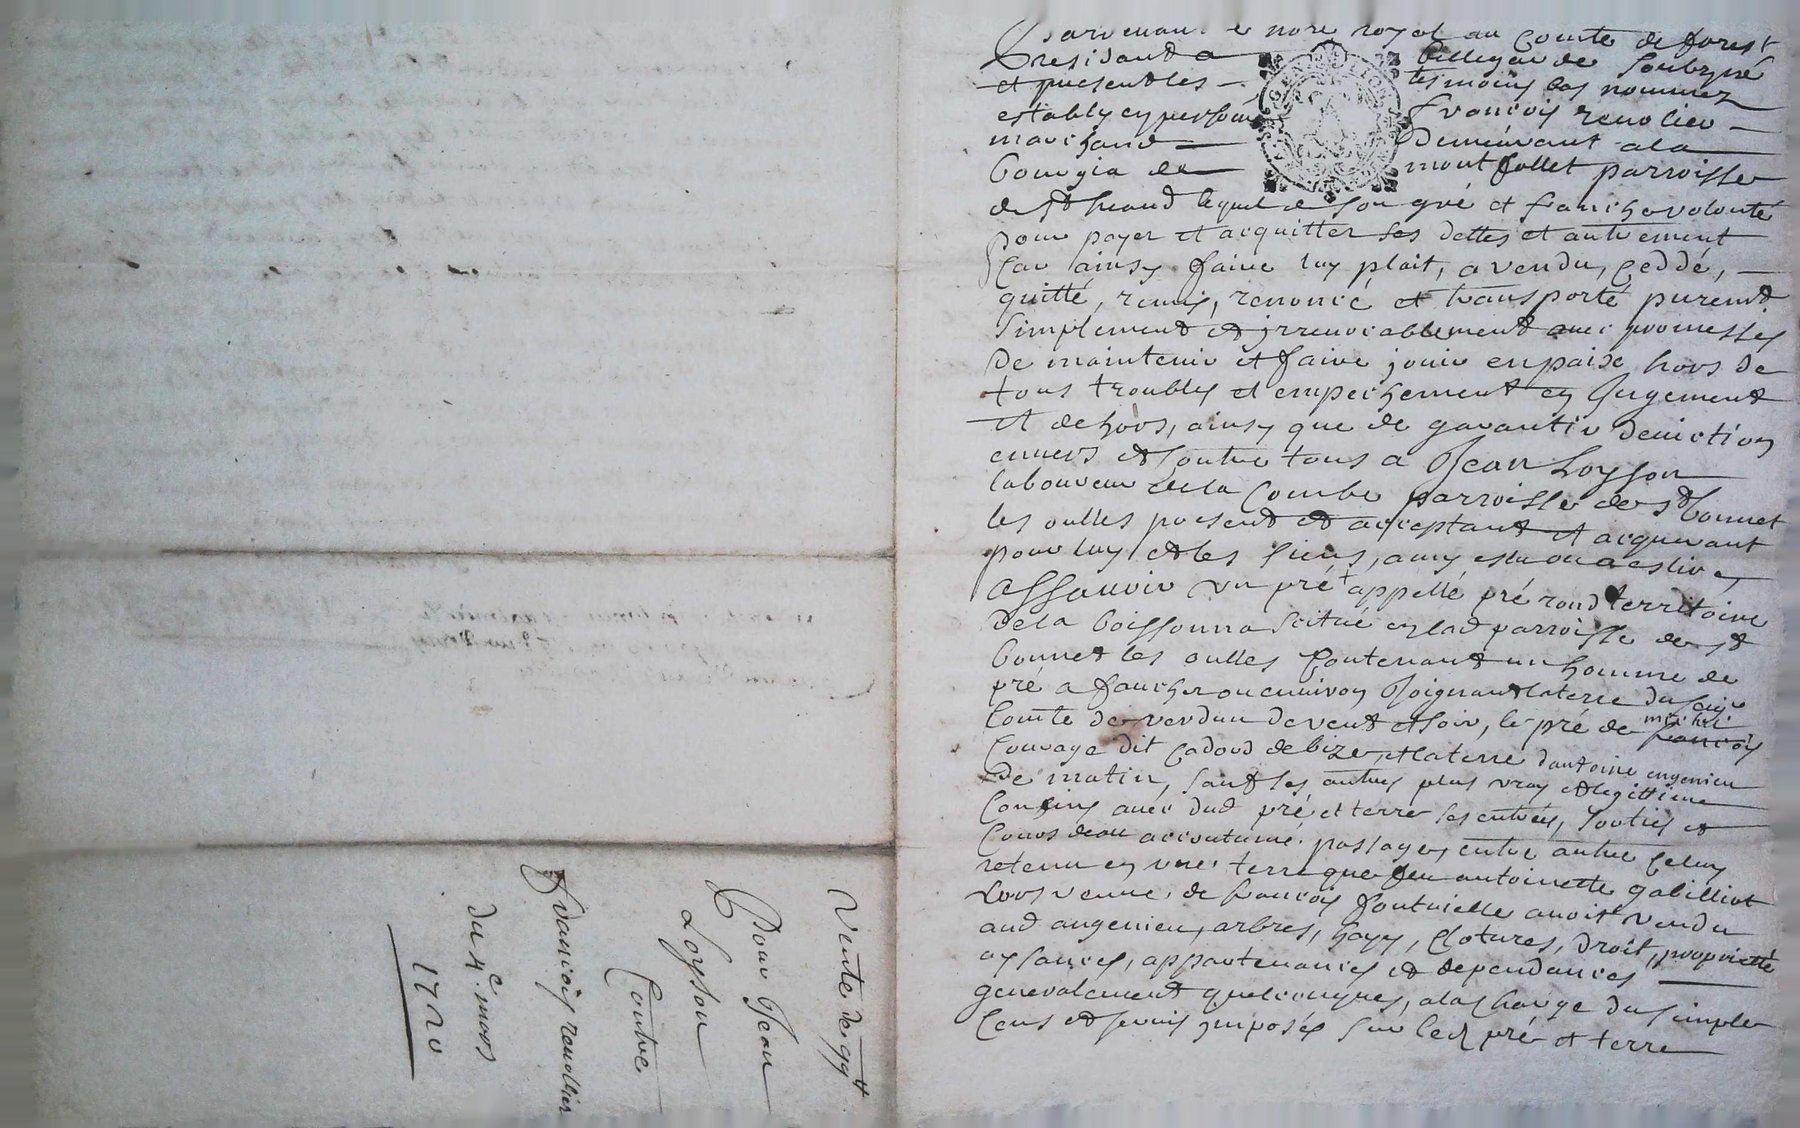 Pardevant le no.re royal au Comté de forest
Residant a Bellegarde Soubzné
et presentz les tesmoins bas nommez
estably en personne françois renolier
marchand Demeurant a la
bourgia de montfollet parroisse
de St heand lequel de son gré et franche volonté
pour payer et acquitter ses dettes et autrement
Car ainsy faire luy plait, a vendu, ceddé,
quitté, remis, renoncé et transporté purem.t
Simplement et jrreuocablement auec promesses
De maintenir et faire jouir en paix hors de
tous troubles et empechement en Jugement
et dehors, ainsy que de garantir deuiction
enuers et Contre tous a Jean Loyson
laboureur de la Combe parroisse de St bonnet
les oulles present et acceptant et acquerant
pour luy et les siens, amy eslu ou a eslire
Assauoir un pré + appellé pré rond territoire
De la boissonna scitué en lad parroisse de St
bonnet les oulles Contenant un homme de
pré a faucher ou enuiron Joignant la terre du seig.r
Comte de verdun de vent et soir, le pré de michel
francois
Courage dit Cadord de bize, et la terre dantoine engenieu
De matin, sauf ses autres plus vrays et legittime
Confins auec dud pré et terre ses entrées, Sorties et
Cours deau accoutumé passages entre autre Celuy
retenu en une terre que feu antoinette gabilliot
Lors veuue de francois fontuielle auoit vendu
aud angenieu, arbres, hayes, Clotures, droit, proprietté
aysances, appartenances et dependances
generalement quelconques, a la Charge du simple
Cens et seruis jmposés sur led pré et terre
Vente de 99 ₶
Pour Jean
Loyson
Contre
François renollier
du 4.e mars
1720